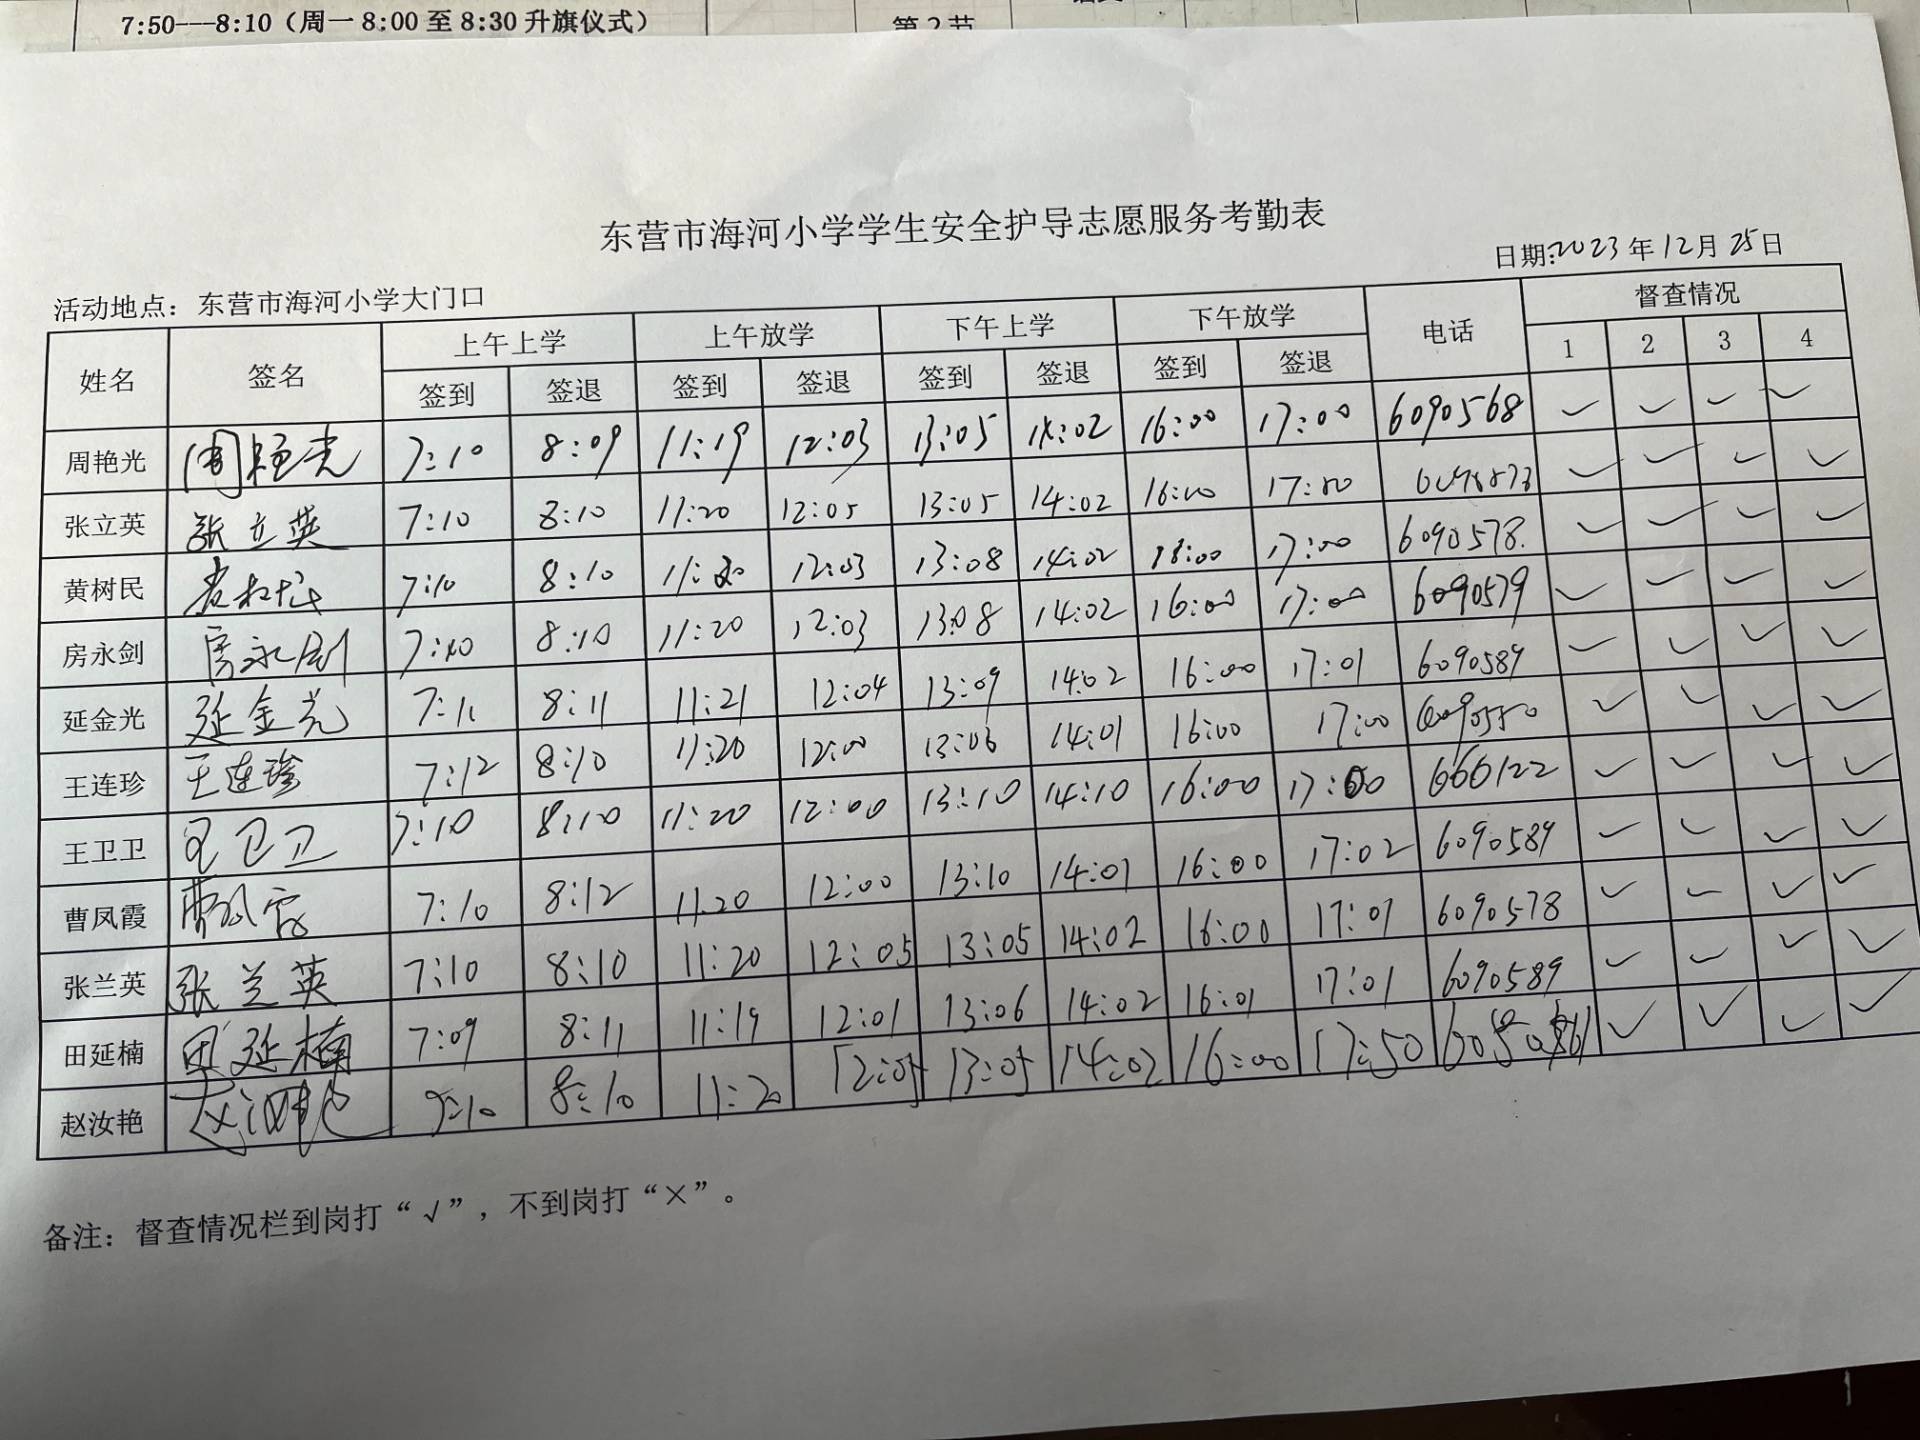 7:50---8:10（周一 8:00 至 8:30 升旗仪式） 第 2 节
东营市海河小学学生安全护导志愿服务考勤表
日期:2023 年 12 月 25 日
活动地点：东营市海河小学大门口
姓名 签名 上午上学 上午放学 下午上学 下午放学 电话 督查情况
签到 签退 签到 签退 签到 签退 签到 签退 1 2 3 4
周艳光 周艳光 7:10 8:09 11:19 12:03 13:05 14:02 16:00 17:00 6090568 ✓ ✓ ✓ ✓
张立英 张立英 7:10 8:10 11:20 12:05 13:05 14:02 16:00 17:00 ✓ ✓ ✓ ✓
黄树民 黄树民 7:10 8:10 11:20 12:03 13:08 14:02 16:00 17:00 6090578. ✓ ✓ ✓ ✓
房永剑 房永剑 7:10 8:10 11:20 12:03 13:08 14:02 16:00 17:00 6090579 ✓ ✓ ✓ ✓
延金光 延金光 7:11 8:11 11:21 12:04 13:09 14:02 16:00 17:01 6090589 ✓ ✓ ✓ ✓
王连珍 王连珍 7:12 8:10 11:20 12:00 13:06 14:01 16:00 17:00 6090550 ✓ ✓ ✓ ✓
王卫卫 王卫卫 7:10 8:10 11:20 12:00 13:10 14:10 16:00 17:00 666122 ✓ ✓ ✓ ✓
曹凤霞 曹凤霞 7:10 8:12 11:20 12:00 13:10 14:01 16:00 17:02 6090589 ✓ ✓ ✓ ✓
张兰英 张兰英 7:10 8:10 11:20 12:05 13:05 14:02 16:00 17:01 6090578 ✓ ✓ ✓ ✓
田延楠 田延楠 7:09 8:11 11:19 12:01 13:06 14:02 16:01 17:01 6090589 ✓ ✓ ✓ ✓
赵汝艳 赵汝艳 7:10 8:10 11:20 12:05 13:05 14:02 16:00 17:50 ✓ ✓ ✓ ✓
备注：督查情况栏到岗打“√”，不到岗打“×”。